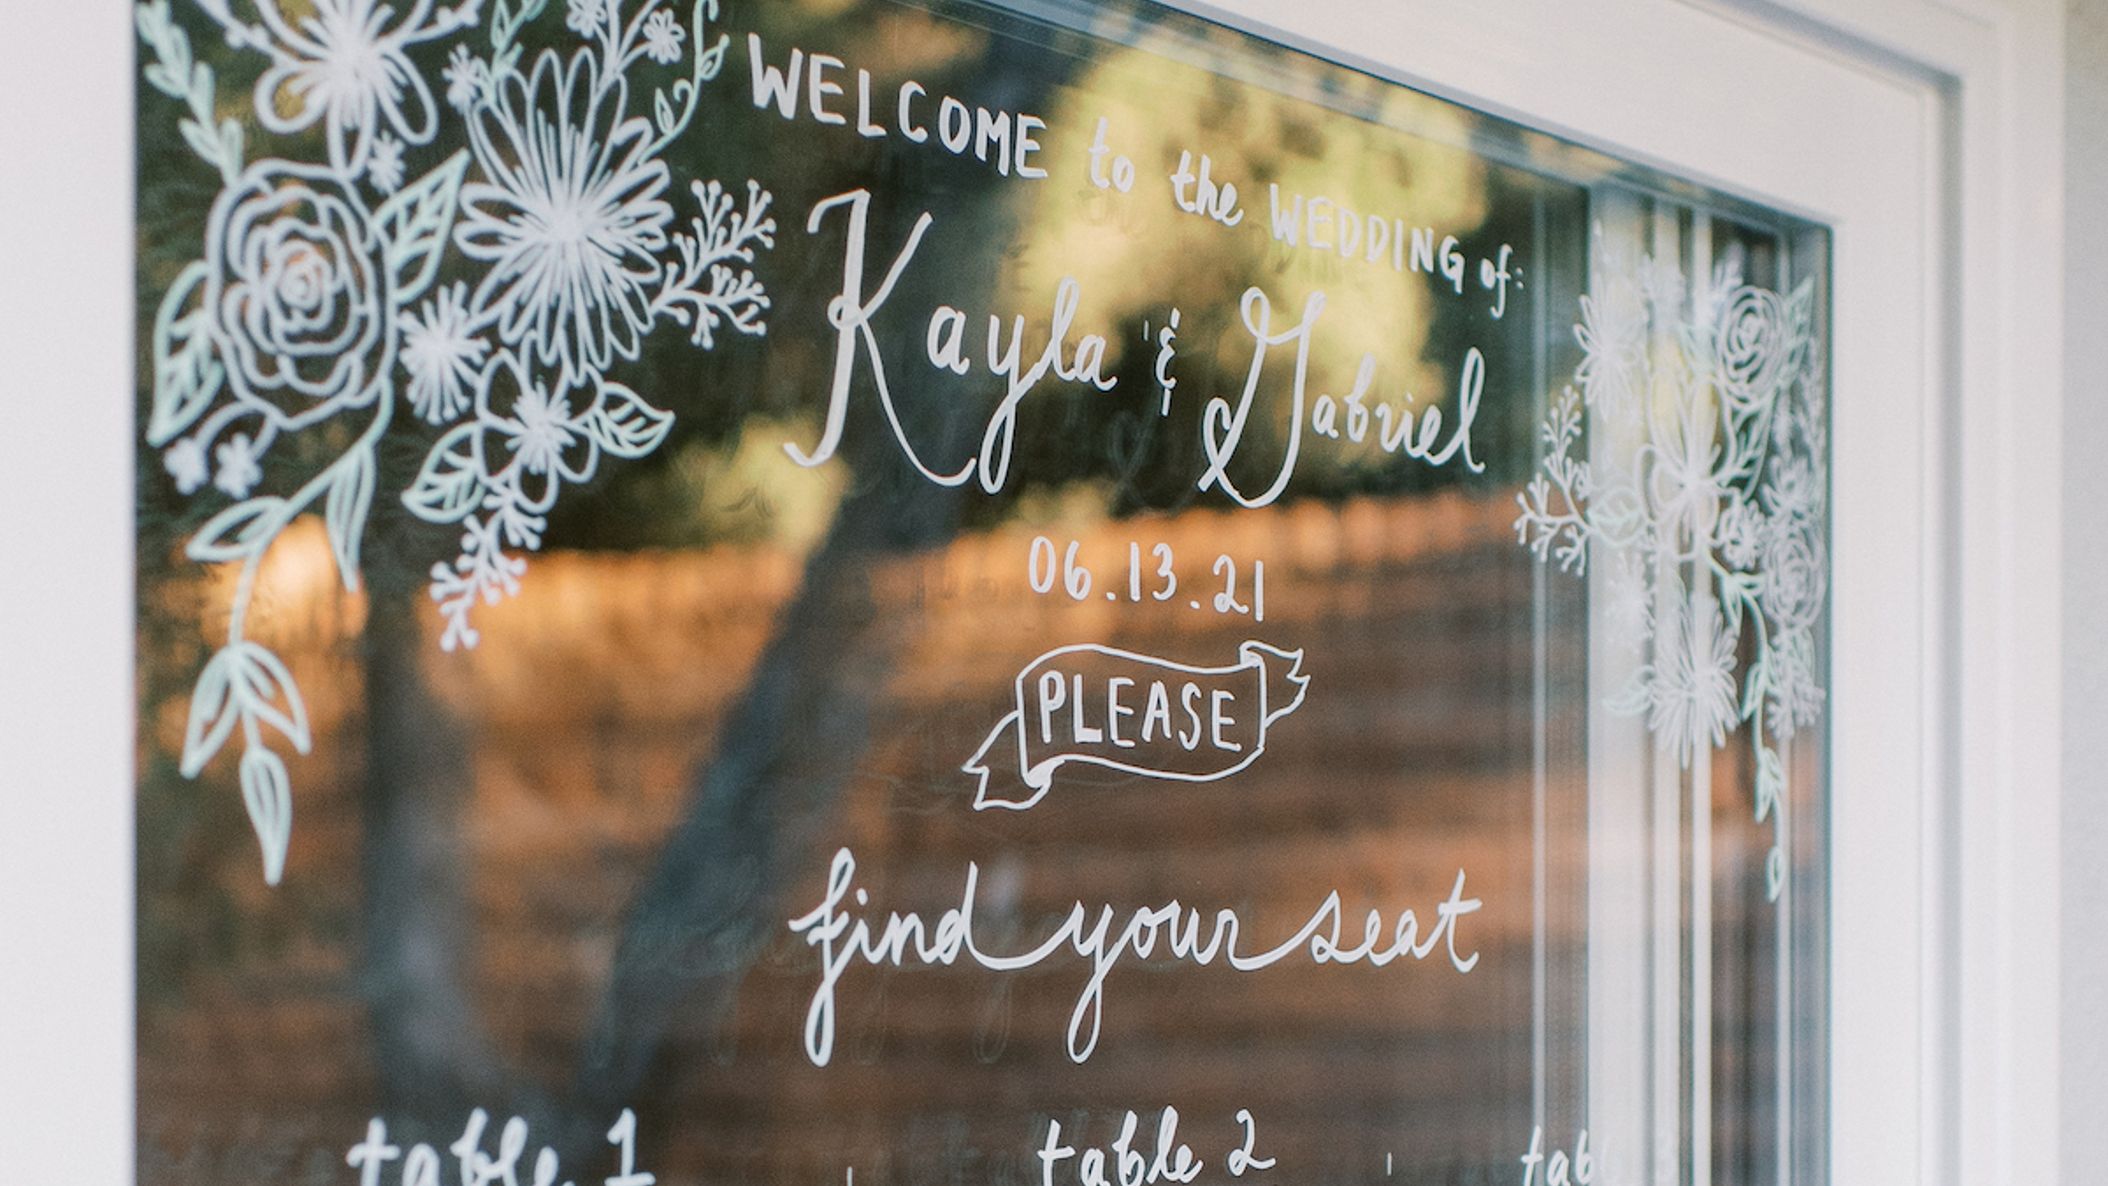 WELCOME to the WEDDING of:
Kayla & Gabriel
06.13.21
PLEASE
find your seat
table 1 table 2